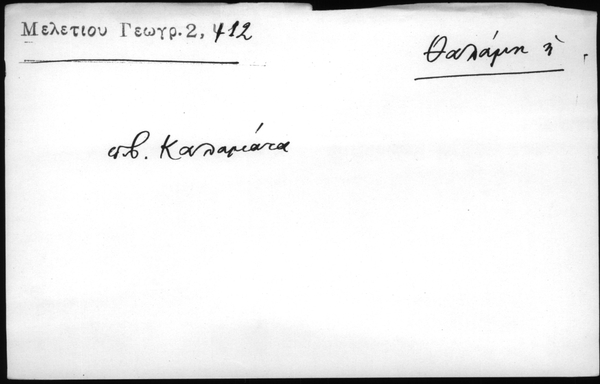 Μελετίου Γεωγρ.2, 412
Θαλάμη ἡ
πβ. Καλαμιάτα